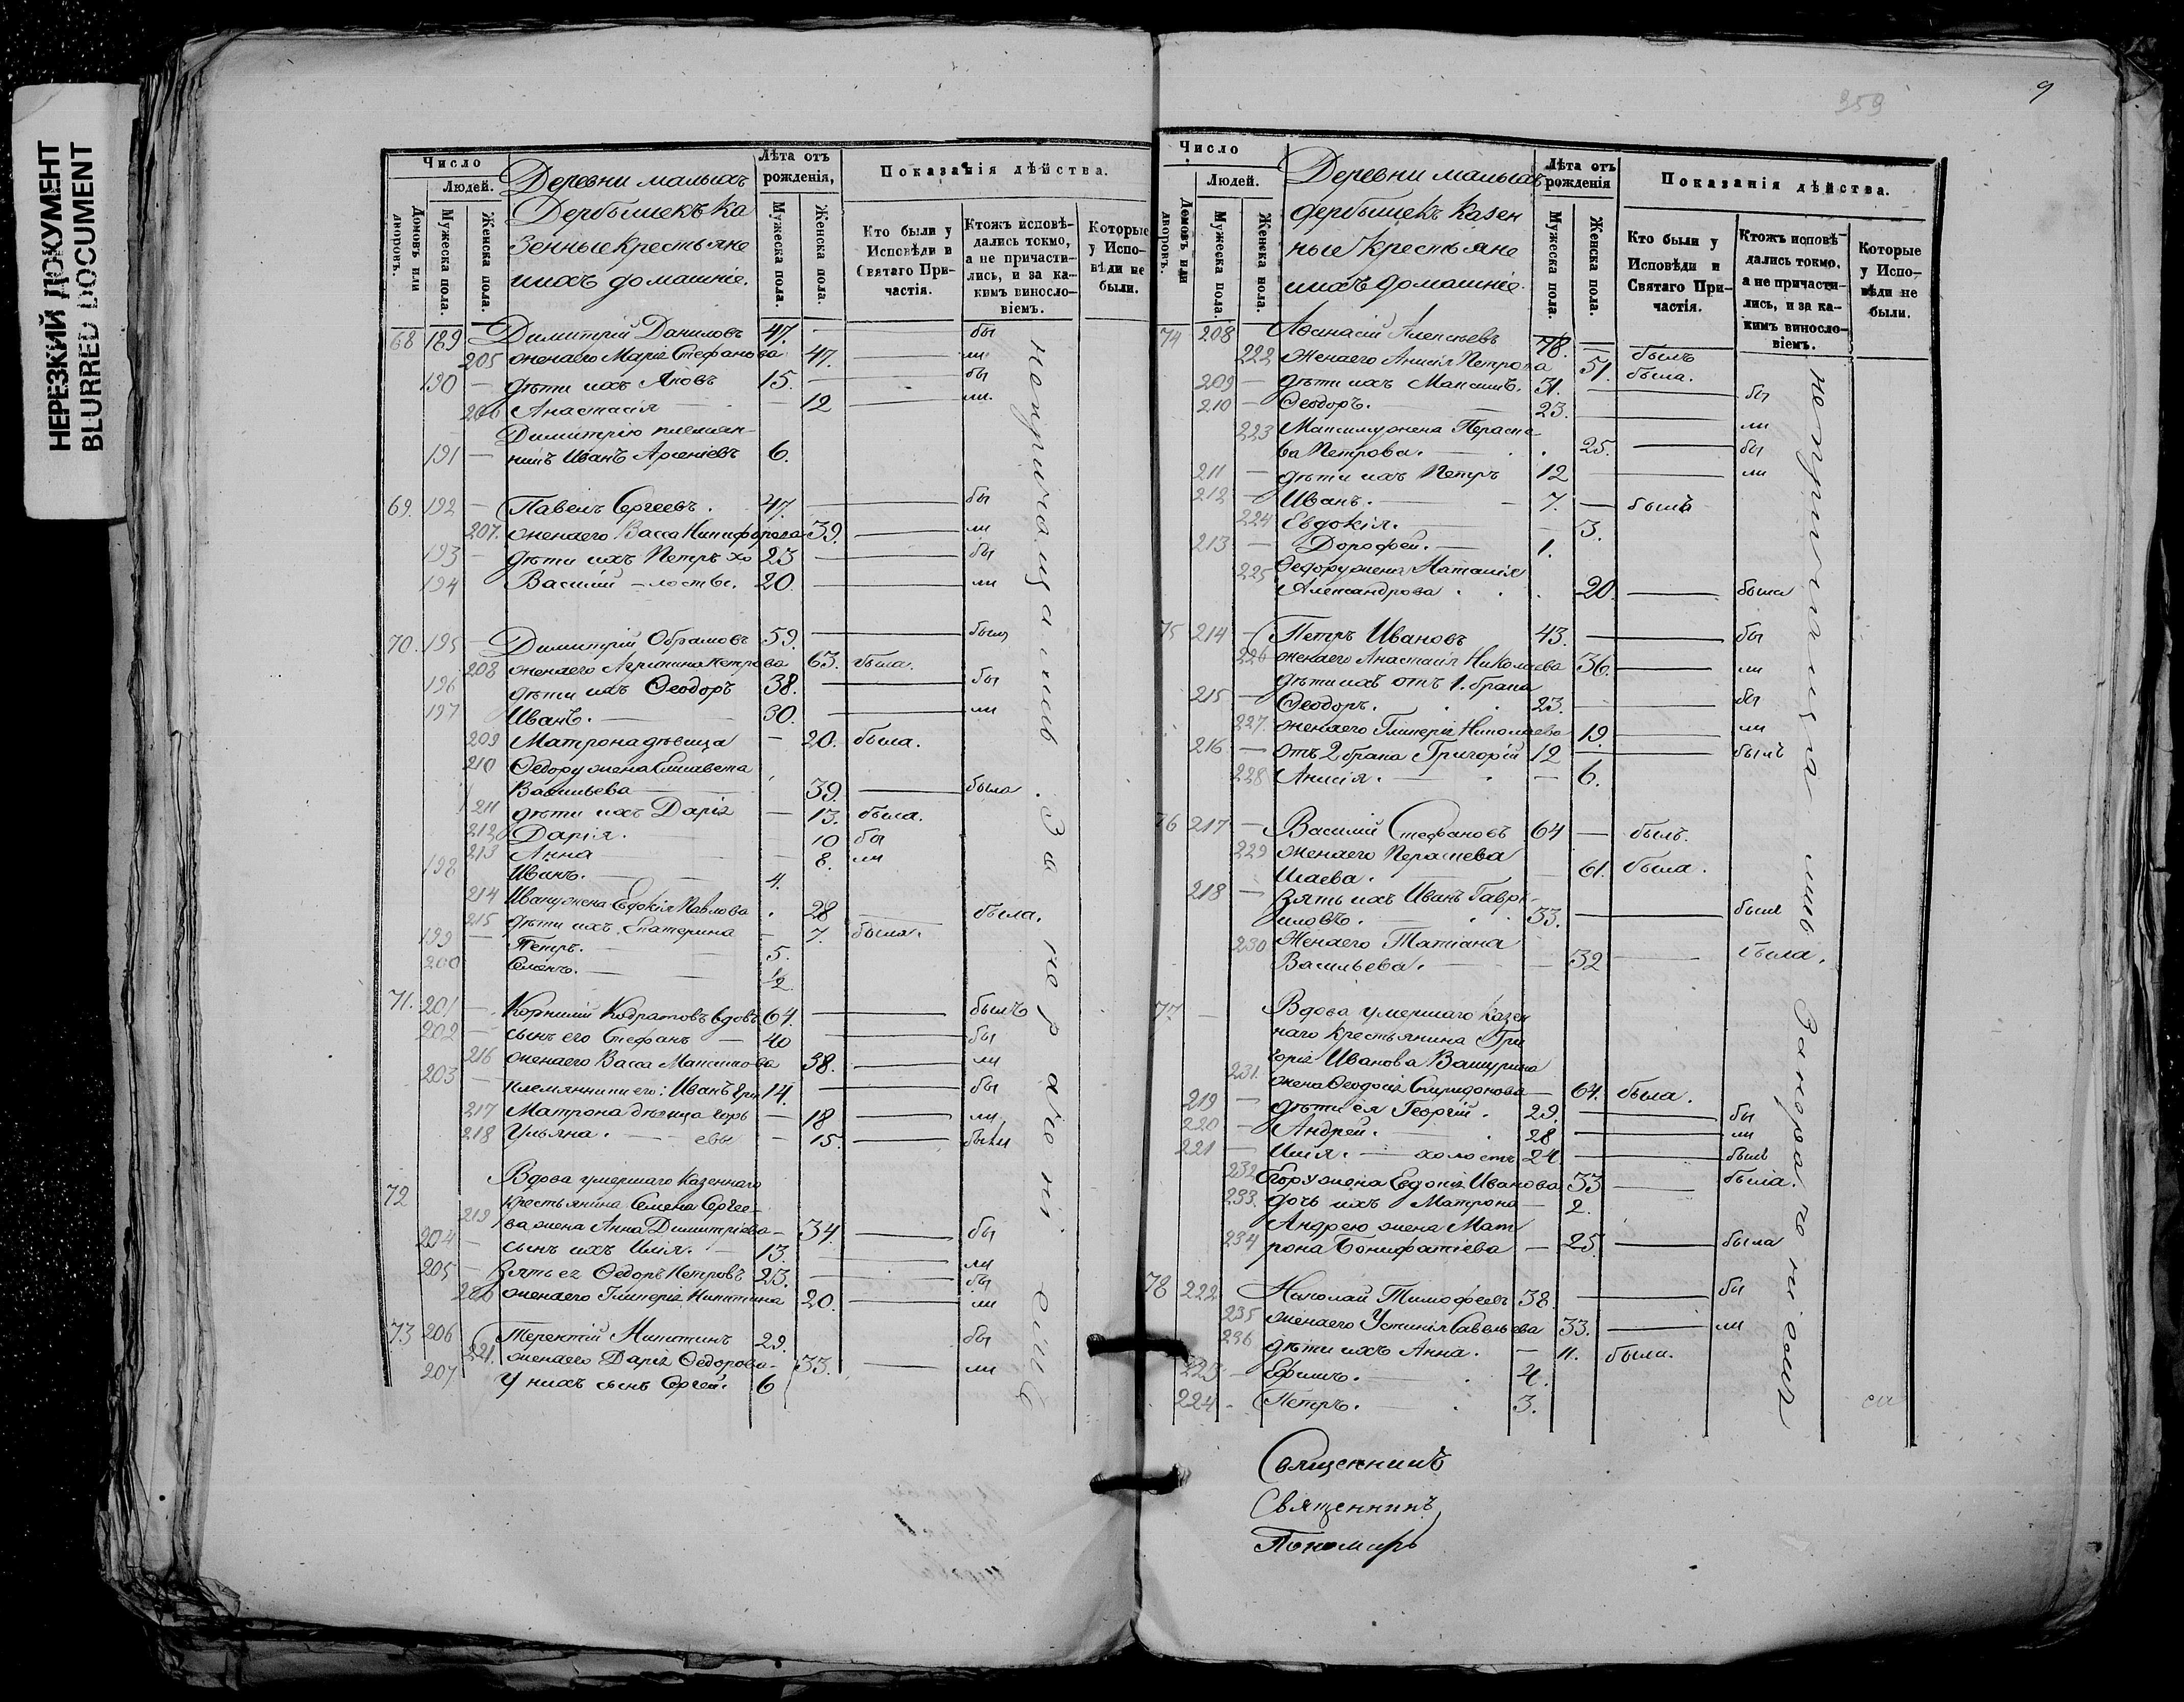 НЕРЕЗКИЙ ДОКУМЕНТ
BLURRED DOCUMENT
Число
Людей.
Домовъ или дворовъ.
Мужеска пола.
Женска пола.
Деревни малыхъ
Дербышекъ ка
зенные крестьяне
ихъ домашніе.
Лѣта отъ рожденія,
Мужеска пола.
Женска пола.
Показанія дѣйства.
Кто были у Исповѣди и Святаго Причастія.
Ктожъ исповѣдались токмо, а не причастились, и за какимъ винословіемъ.
Которые у Исповѣди не были.
68 189 Димитрій Даниловъ 47. — бы
205 жена его Марія Стефанова 47. — ли
190 — дѣти ихъ Яковъ 15. — бы
206 Анастасія — 12 — ли.
Димитрію племян-
191 — никъ Иванъ Арсеніевъ 6.
69. 192 — Павелъ Сергеевъ. 47. — бы
207. жена его Васса Никифорова 39. — ли
193 — дѣти ихъ Петръ хо 23 — бы
194 Василій — лосты. 20. — ли
70. 195 — Димитрій Обрамовъ 59. — былъ
208 жена его Агрипина Петрова 63. была.
196 дѣти ихъ Ѳеодоръ 38. — бы
197 Иванъ. — 30. — ли
209 Матрона дѣвица — 20. была.
210 Ѳедору жена Елисавета
Васильева 39. — была
211 дѣти ихъ Дарія — 13. была.
212 Дарія. 10 бы
213 Анна — 8. ли
198 Иванъ. — 4.
214 Ивану жена Евдокія Павлова 28 — была.
215 дѣти ихъ Екатерина — 7. была.
199 — Петръ. — 5.
200 Семенъ. — ½
71. 201 — Корнилій Кодратовъ вдовъ 64. — былъ
202 — сынъ его Стефанъ — 40 — бы
216 жена его Васса Максимова 38. — ли
203 — племянники его: Иванъ Гри 14. — бы
217 Матрона дѣвица горь — 18 — ли
218 Ульяна. — евы — 15. — были
72 Вдова умершаго казеннаго
крестьянина Семена Сергее-
219 ва жена Анна Димитріева — 34 — бы
204 — сынъ ихъ Илія. — 13. — ли
205 — зять ея Ѳедоръ Петровъ 23. — бы
220 жена его Гликерія Никитина 20. — ли
73 206 Терентій Никитинъ 29. бы
221. жена его Дарія Ѳедорова — 33. — ли
207 У нихъ сынъ Сергей. 6
непричащались. За нерачені емъ
959
9
Число
Людей.
Домовъ или дворовъ.
Мужеска пола.
Женска пола.
Деревни малыхъ
дербышекъ казен
ные крестьяне
ихъ домашніе.
Лѣта отъ рожденія
Мужеска пола.
Женска пола.
Показанія дѣйства.
Кто были у Исповѣди и Святаго Причастія.
Ктожъ исповѣдались токмо, а не причастились, и за какимъ винословіемъ.
Которые у Исповѣди не были.
74 208 Аѳанасій Алексѣевъ 78. — былъ
222 жена его Анисія Петрова 51. была.
209 — дѣти ихъ Максимъ. 31. — бы
210 — Ѳеодоръ. 23. — ли
223 Максиму жена Параске
ва Петрова. — 25. — бы
211 — дѣти ихъ Петръ 12 — ли
212 — Иванъ. — 7. — былъ
224 Евдокія. — 3.
213 — Дорофей. — 1.
225 Ѳедору жена Наталія
Александрова . . . 20. — была
75 214 — Петръ Ивановъ 43. — бы
226 жена его Анастасія Николаева 36. — ли
дѣти ихъ отъ 1. брака
215 — Ѳеодоръ. . . 23. — бы
227. жена его Гликерія Николаева 19. — ли
216 — отъ 2 брака Григорій 12 — былъ
228 Анисія. — 6.
76 217 — Василій Стефановъ 64 — былъ.
229 жена его Параскева
Исаева. — 61. была.
218 — зять ихъ Иванъ Гаври-
ловъ. — 33. — былъ
230 Жена его Татіана
Васильева. — 32 — была.
77. — Вдова умершаго казен
наго крестьянина Гри
горія Иванова Вашурина
231. жена Ѳеодосія Спиридонова — 64. была.
219 — дѣти ея Георгій. 29. — бы
220 — Андрей. — 28 — ли
221 — Илія. — холостъ 24. — былъ
232 Егору жена Евдокія Иванова 33 — была.
233. дочь ихъ Матрона — 2.
Андрею жена Мат
234 рона Бонифатіева — 25. — была
78 222 Николай Тимофеевъ 38. — бы
235 жена его Устинія Савельева 33. — ли
236 дѣти ихъ Анна. — 11. была.
223 — Ефимъ. — 4.
224 — Петръ. — 3.
непричащались. За нераченіемъ
Священникъ
Священникъ
Пономарь